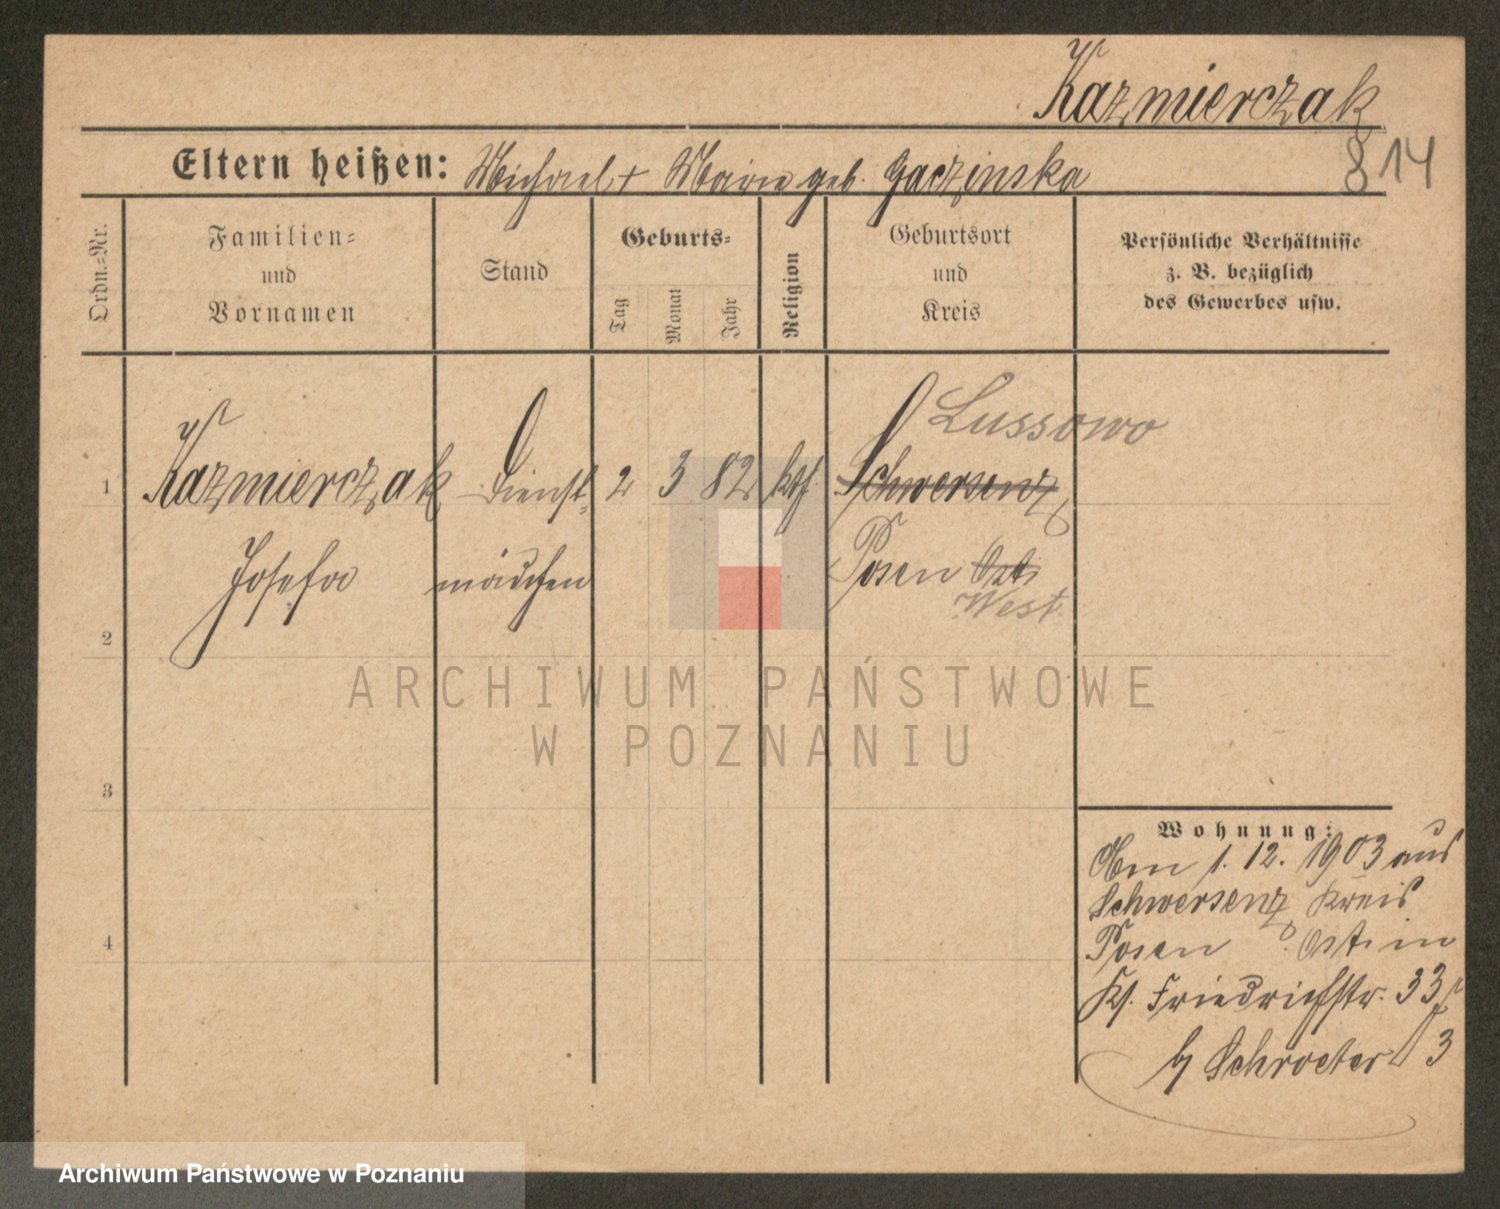 Kazmierczak
Eltern heißen: Michael + Marie geb. Gaczinska
814
Ordn.-Nr.
Familien-
und
Vornamen
Stand
Geburts-
Tag
Monat
Jahr
Religion
Geburtsort
und
Kreis
Persönliche Verhältnisse
z. B. bezüglich
des Gewerbes usw.
Lussowo
1 Kazmierczak Dienst- 2 3 82 kth. Schwersenz
Josefa mädchen Posen Ost
West
2
3
4
Wohnung:
Am 1. 12. 1903 aus
Schwersenz Kreis
Posen Ost in
Friedrichstr. 33
b/ Schroeter 3
ARCHIWUM PAŃSTWOWE
W POZNANIU
Archiwum Państwowe w Poznaniu